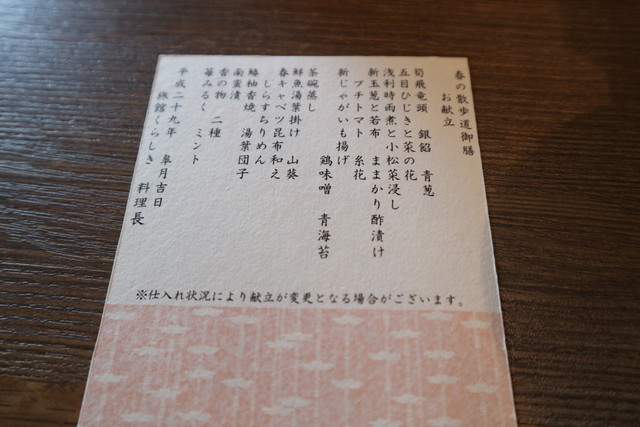 春の散歩道御膳
お献立
筍飛竜頭 銀餡 青葱
五目ひじきと菜の花
浅利時雨煮と小松菜浸し
新玉葱と若布 ままかり酢漬け
プチトマト 糸花
新じゃがいも揚げ
鶏味噌 青海苔
茶碗蒸し
鮮魚湯葉掛け 山葵
春キャベツ昆布和え
しらすちりめん
鰆柚香焼 湯葉団子
南蛮漬
香の物 二種
苺みるく ミント
平成二十九年 皐月吉日
旅館くらしき 料理長
※仕入れ状況により献立が変更となる場合がございます。